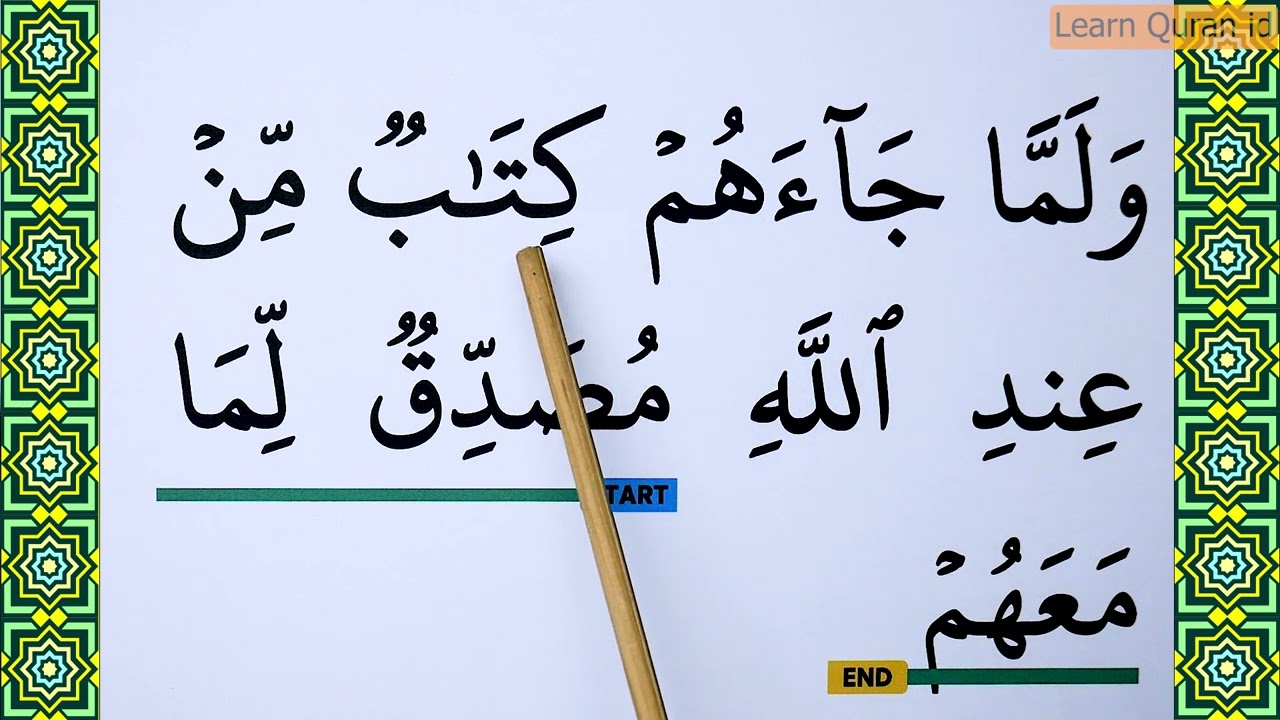 Learn Quran id
وَلَمَّا جَآءَهُمْ كِتَـٰبٌ مِّنْ
عِندِ ٱللَّهِ مُصَدِّقٌ لِّمَا
TART
مَعَهُمْ
END